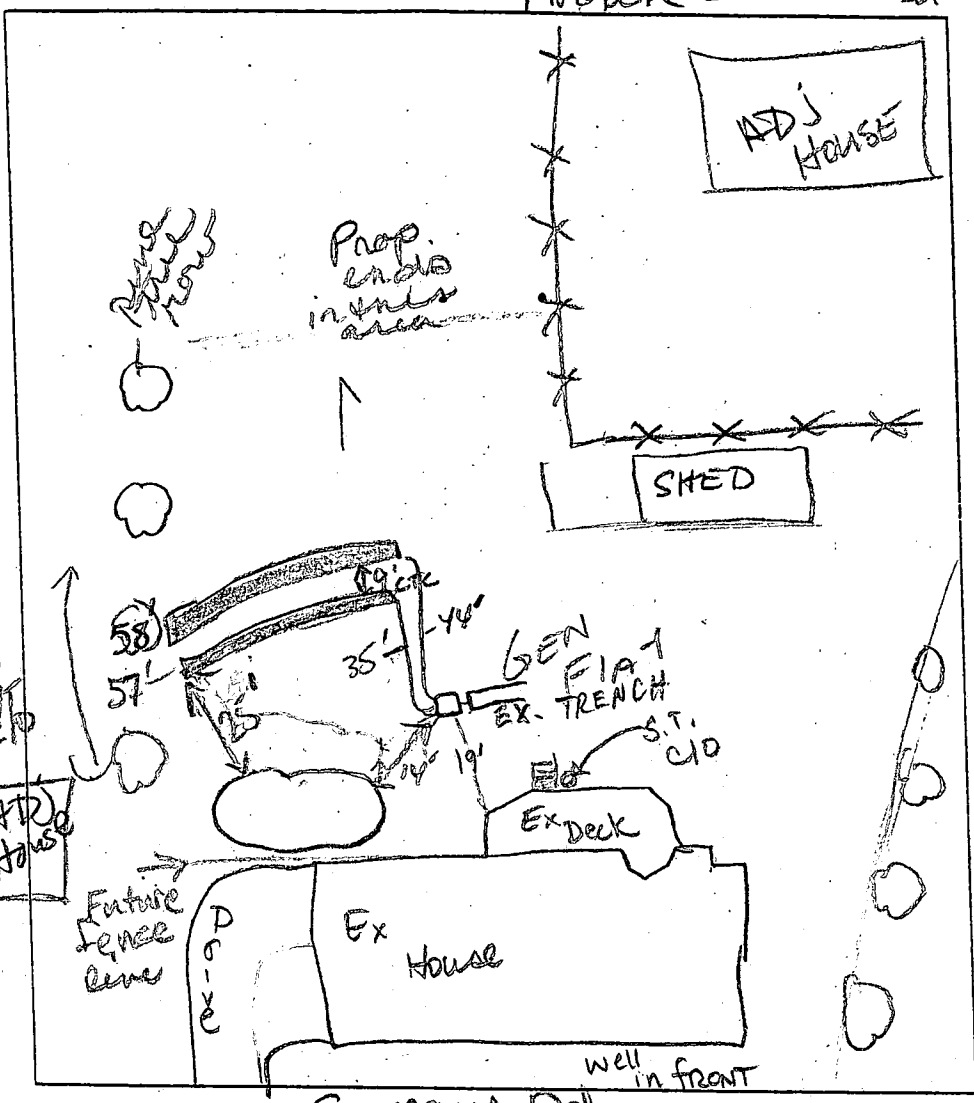 ADJ
HOUSE
Pine
Tree
row
Prop.
ends
in this
area
SHED
9' CTC
58'
57'
35'
44'
GEN
FLAT
EX. TRENCH
25'
14'
19'
S.T.
C/O
Ex Deck
ADJ
House
Future
fence
line
Drive
Ex
House
well
in FRONT